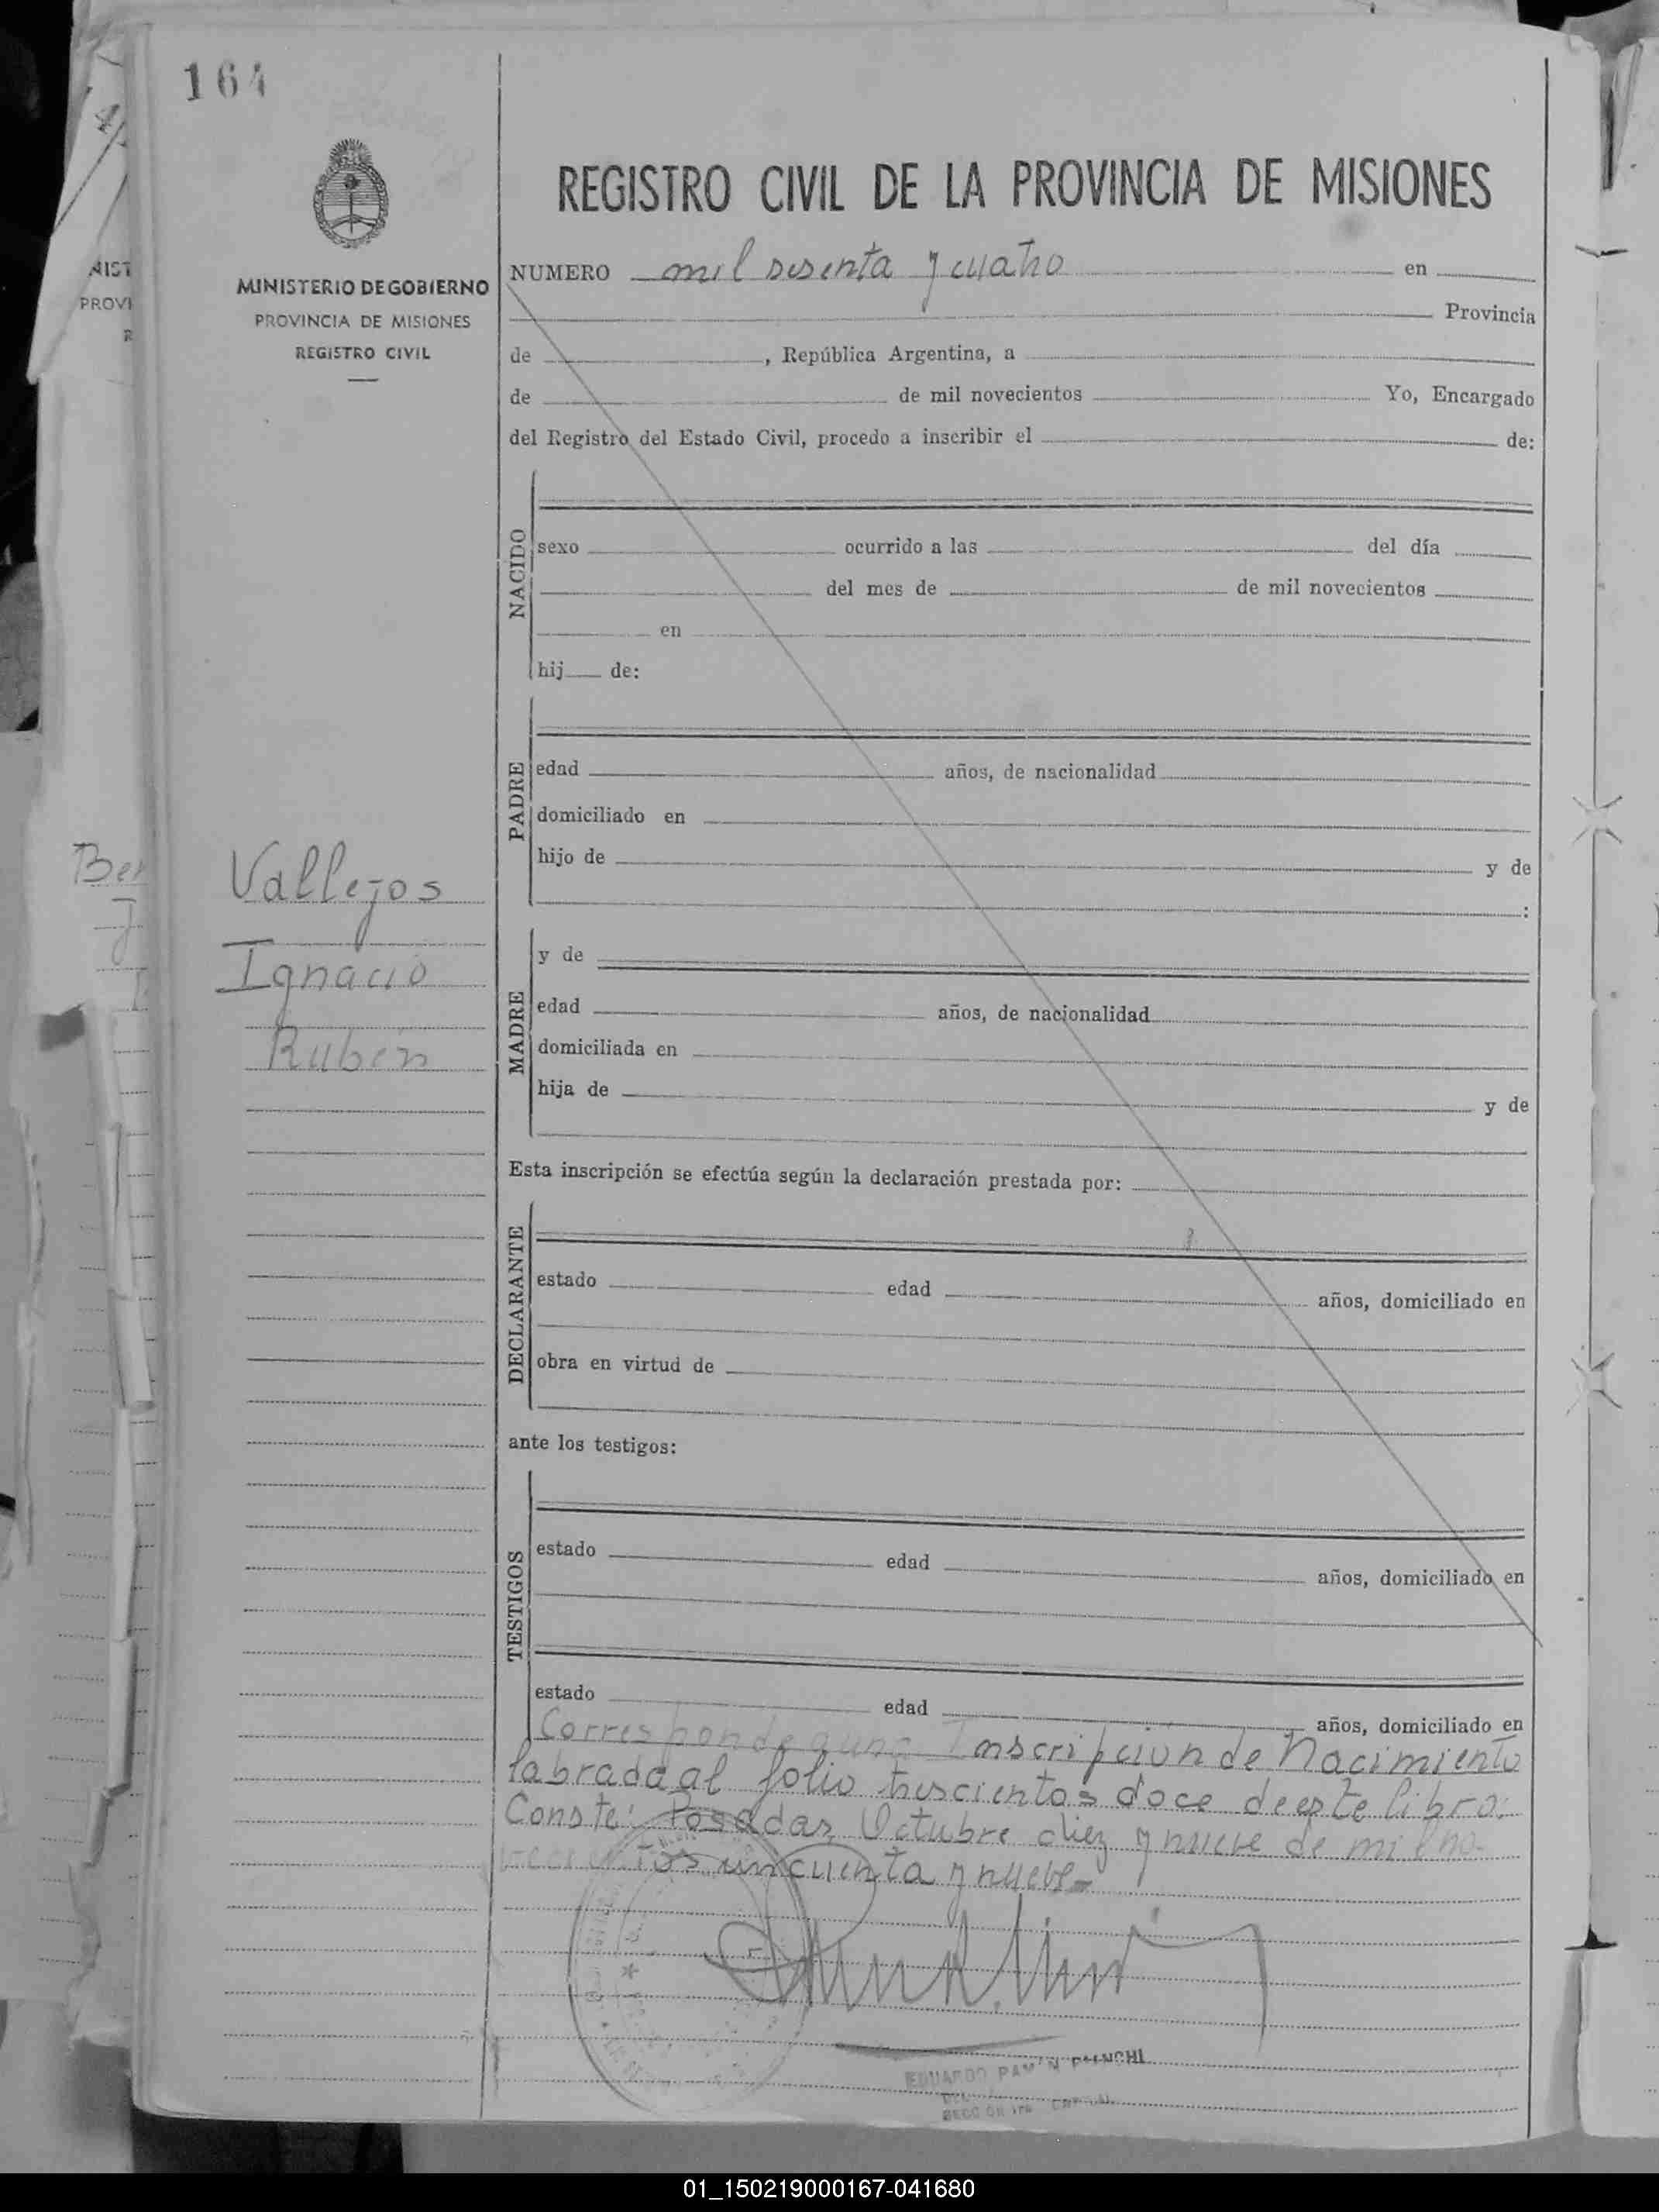 164
MINISTERIO DE GOBIERNO
PROVINCIA DE MISIONES
REGISTRO CIVIL
Vallejos
Ignacio
Rubén
REGISTRO CIVIL DE LA PROVINCIA DE MISIONES
NUMERO mil sesenta y cuatro en
Provincia
de , República Argentina, a
de de mil novecientos Yo, Encargado
del Registro del Estado Civil, procedo a inscribir el de:
NACIDO
sexo ocurrido a las del día
del mes de de mil novecientos
en
hij de:
PADRE
edad años, de nacionalidad
domiciliado en
hijo de y de
:
MADRE
y de
edad años, de nacionalidad
domiciliada en
hija de y de
Esta inscripción se efectúa según la declaración prestada por:
DECLARANTE
estado edad años, domiciliado en
obra en virtud de
ante los testigos:
TESTIGOS
estado edad años, domiciliado en
estado edad años, domiciliado en
Corresponde a una Inscripción de Nacimiento
labrada al folio trescientos doce de este libro.
Conste: Posadas, Octubre diez y nueve de mil no-
vecientos cincuenta y nueve-
EDUARDO RAMÓN BIANCHI
01_150219000167-041680